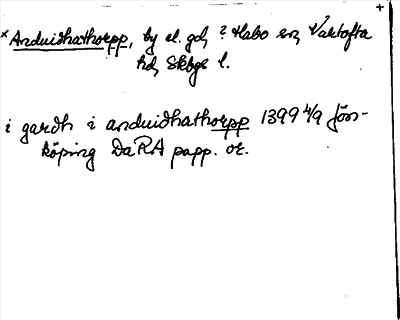 +
× Anduidhathorpp, by el. gd, ? Habo sn, Vartofta
hd, Skbgs l.
i gardh i anduidhathorpp 1399 4/9 Jön-
köping DaRA papp. or.